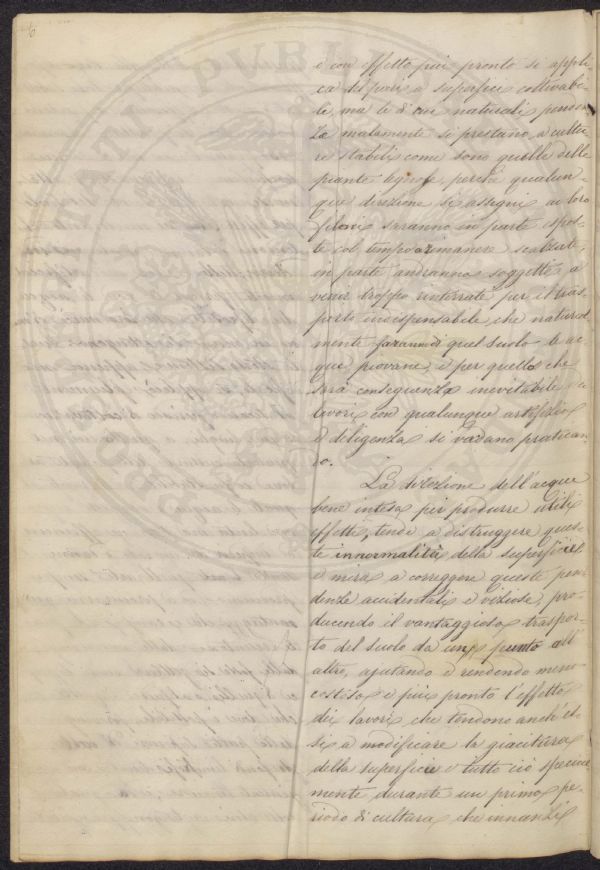 6
e con effetto più pronto si appli-
ca di poi a superfici coltivabi-
li, ma le di cui naturali penden-
ze malamente si prestano a cultu-
re stabili come sono quelle delle
piante legnose, perchè qualun-
que direzione si assegni ai loro
filoni saranno in parte espos-
te col tempo a rimanere scalzate,
in parte andranno soggette a
venir troppo rinterrate per il tras-
porto indispensabile che natural-
mente faranno di quel suolo le ac-
que piovane, e per quello che
sarà conseguenza inevitabile dei
lavori con qualunque artifizio
e diligenza si vadano pratican-
do.
La direzione dell'acque
bene intesa per produrre utili
effetti, tende a distruggere ques-
te innormalità della superficie
e mira a correggere queste pen-
denze accidentali e viziose, pro-
ducendo il vantaggioso traspor-
to del suolo da un punto all'
altro, ajutando e rendendo meno
costoso e più pronto l'effetto
dei lavori che tendono anch'es-
si a modificare la giacitura
della superficie e tutto ciò specia-
mente durante un primo pe-
riodo di cultura, che innanzi